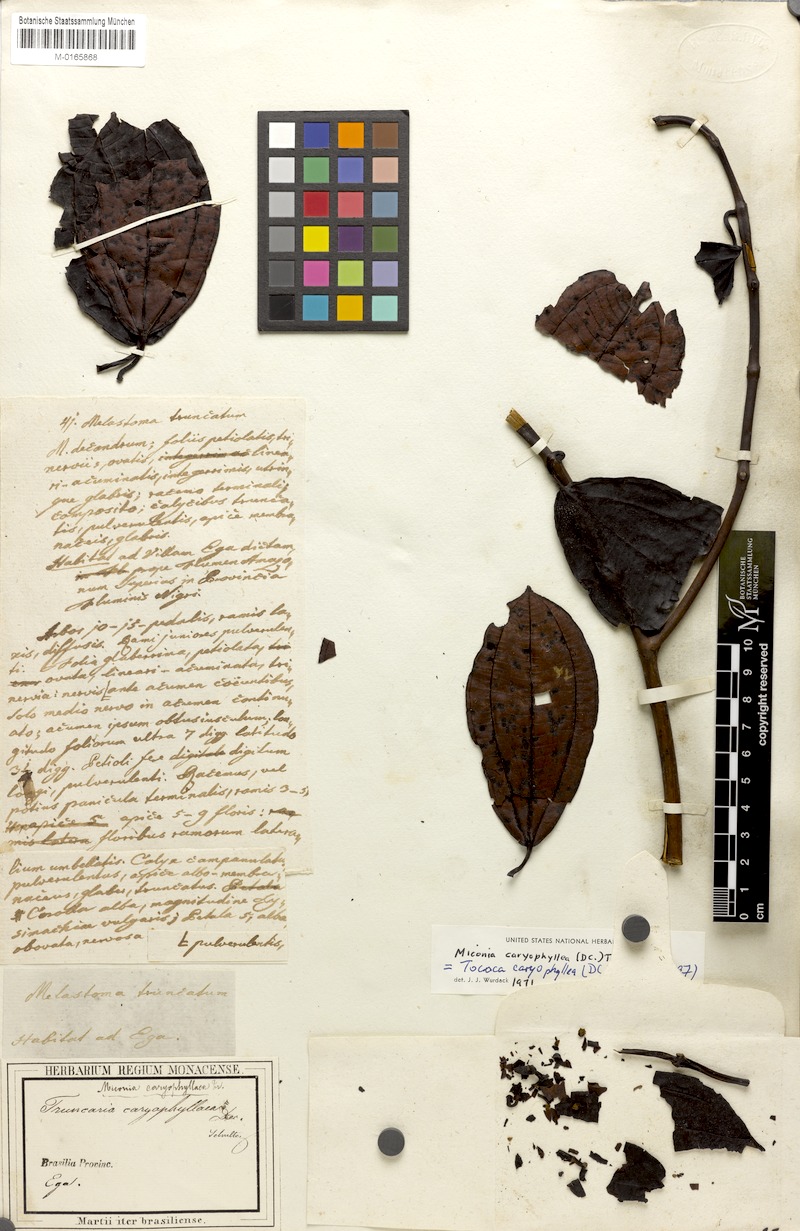 Botanische Staatssammlung München
M-0165868
4j. Melastoma truncatum
M. decandrum; foliis petiolatis, tri,
nerviis, ovatis, integerrimis linea,
ri-acuminatis, integerrimis, utrin,
que glabris; racemo terminali
composito; calycibus trunca,
tis, pulverulentis, apice membra,
naceis, glabris.
Habitat ad Villam Ega dictam,
prope flumen Amazo,
num Superius in Provincia
fluminis Nigri
Arbor 10-15-pedalis, ramis la,
xis, diffusis. Rami juniores pulverulen,
ti. Folia glaberrima, petiolata,
ovata, lineari-acuminata, tri,
nervia: nervis ante acumen coëuntibus,
solo medio nervo in acumen continu,
ato; acumen ipsum obtusiusculum; lon,
gitudo foliorum ultra 7 digg. latitudo
3½ digg. Petioli fere digitum
longi, pulverulenti. Racemus, vel
potius panicula terminalis, ramis 3-5,
apice 5 apice 5-9 floris:
floribus ramorum latera,
lium umbellatis. Calyx campanulatus,
pulverulentus, apice albo-membra,
naceus, glaber, truncatus. Petala
Corolla alba, magnitudine Ly,
simachiae vulgaris; Petala 5, alba,
obovata, nervosa
pulverulentis,
Melastoma truncatum
Habitat ad Ega.
HERBARIUM REGIUM MONACENSE.
Miconia caryophyllaea
Truncaria caryophyllaea
Brasilia Provinc.
Ega.
Martii iter brasiliense.
UNITED STATES NATIONAL HERBA
Miconia caryophyllea (DC.) T
= Tococa caryophyllea (DC 37)
det. J. J. Wurdack 1971
0 1 2 3 4 5 6 7 8 9 10
cm
copyright reserved
M
BOTANISCHE
STAATSSAMMLUNG
MÜNCHEN